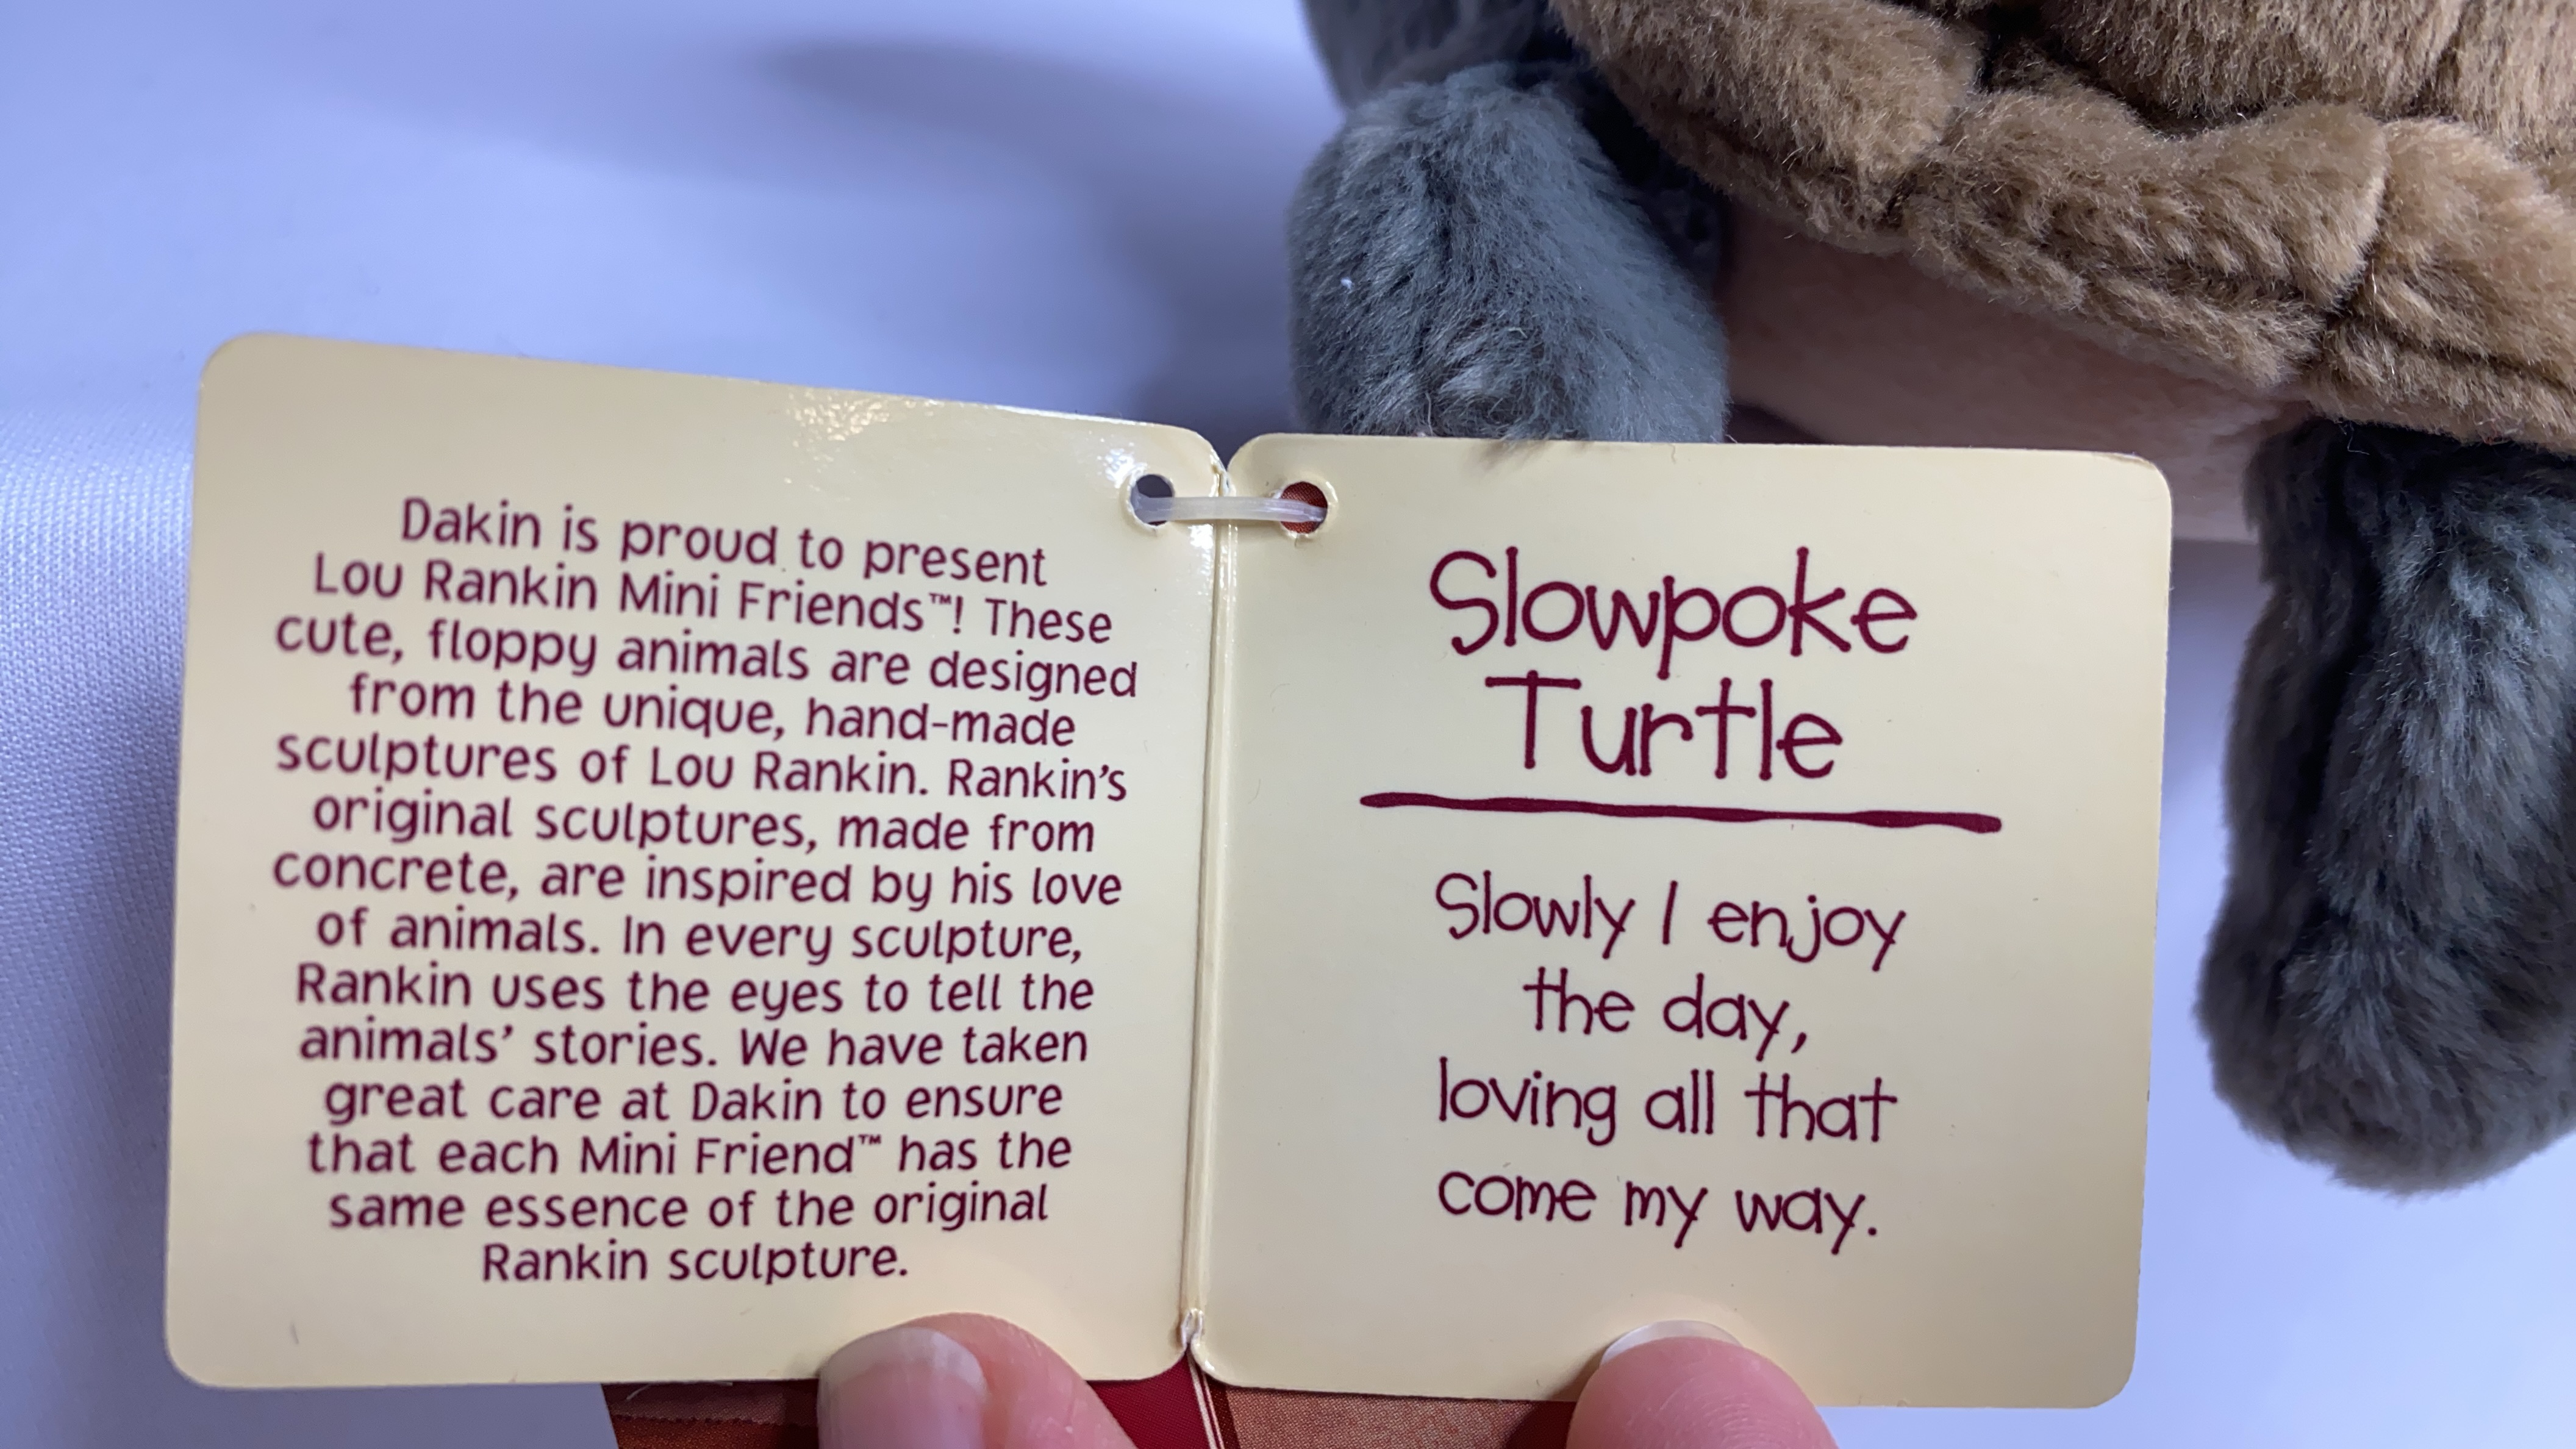 Dakin is proud to present
Lou Rankin Mini Friends™! These
cute, floppy animals are designed
from the unique, hand-made
sculptures of Lou Rankin. Rankin's
original sculptures, made from
concrete, are inspired by his love
of animals. In every sculpture,
Rankin uses the eyes to tell the
animals' stories. We have taken
great care at Dakin to ensure
that each Mini Friend™ has the
same essence of the original
Rankin sculpture.
Slowpoke
Turtle
Slowly I enjoy
the day,
loving all that
come my way.